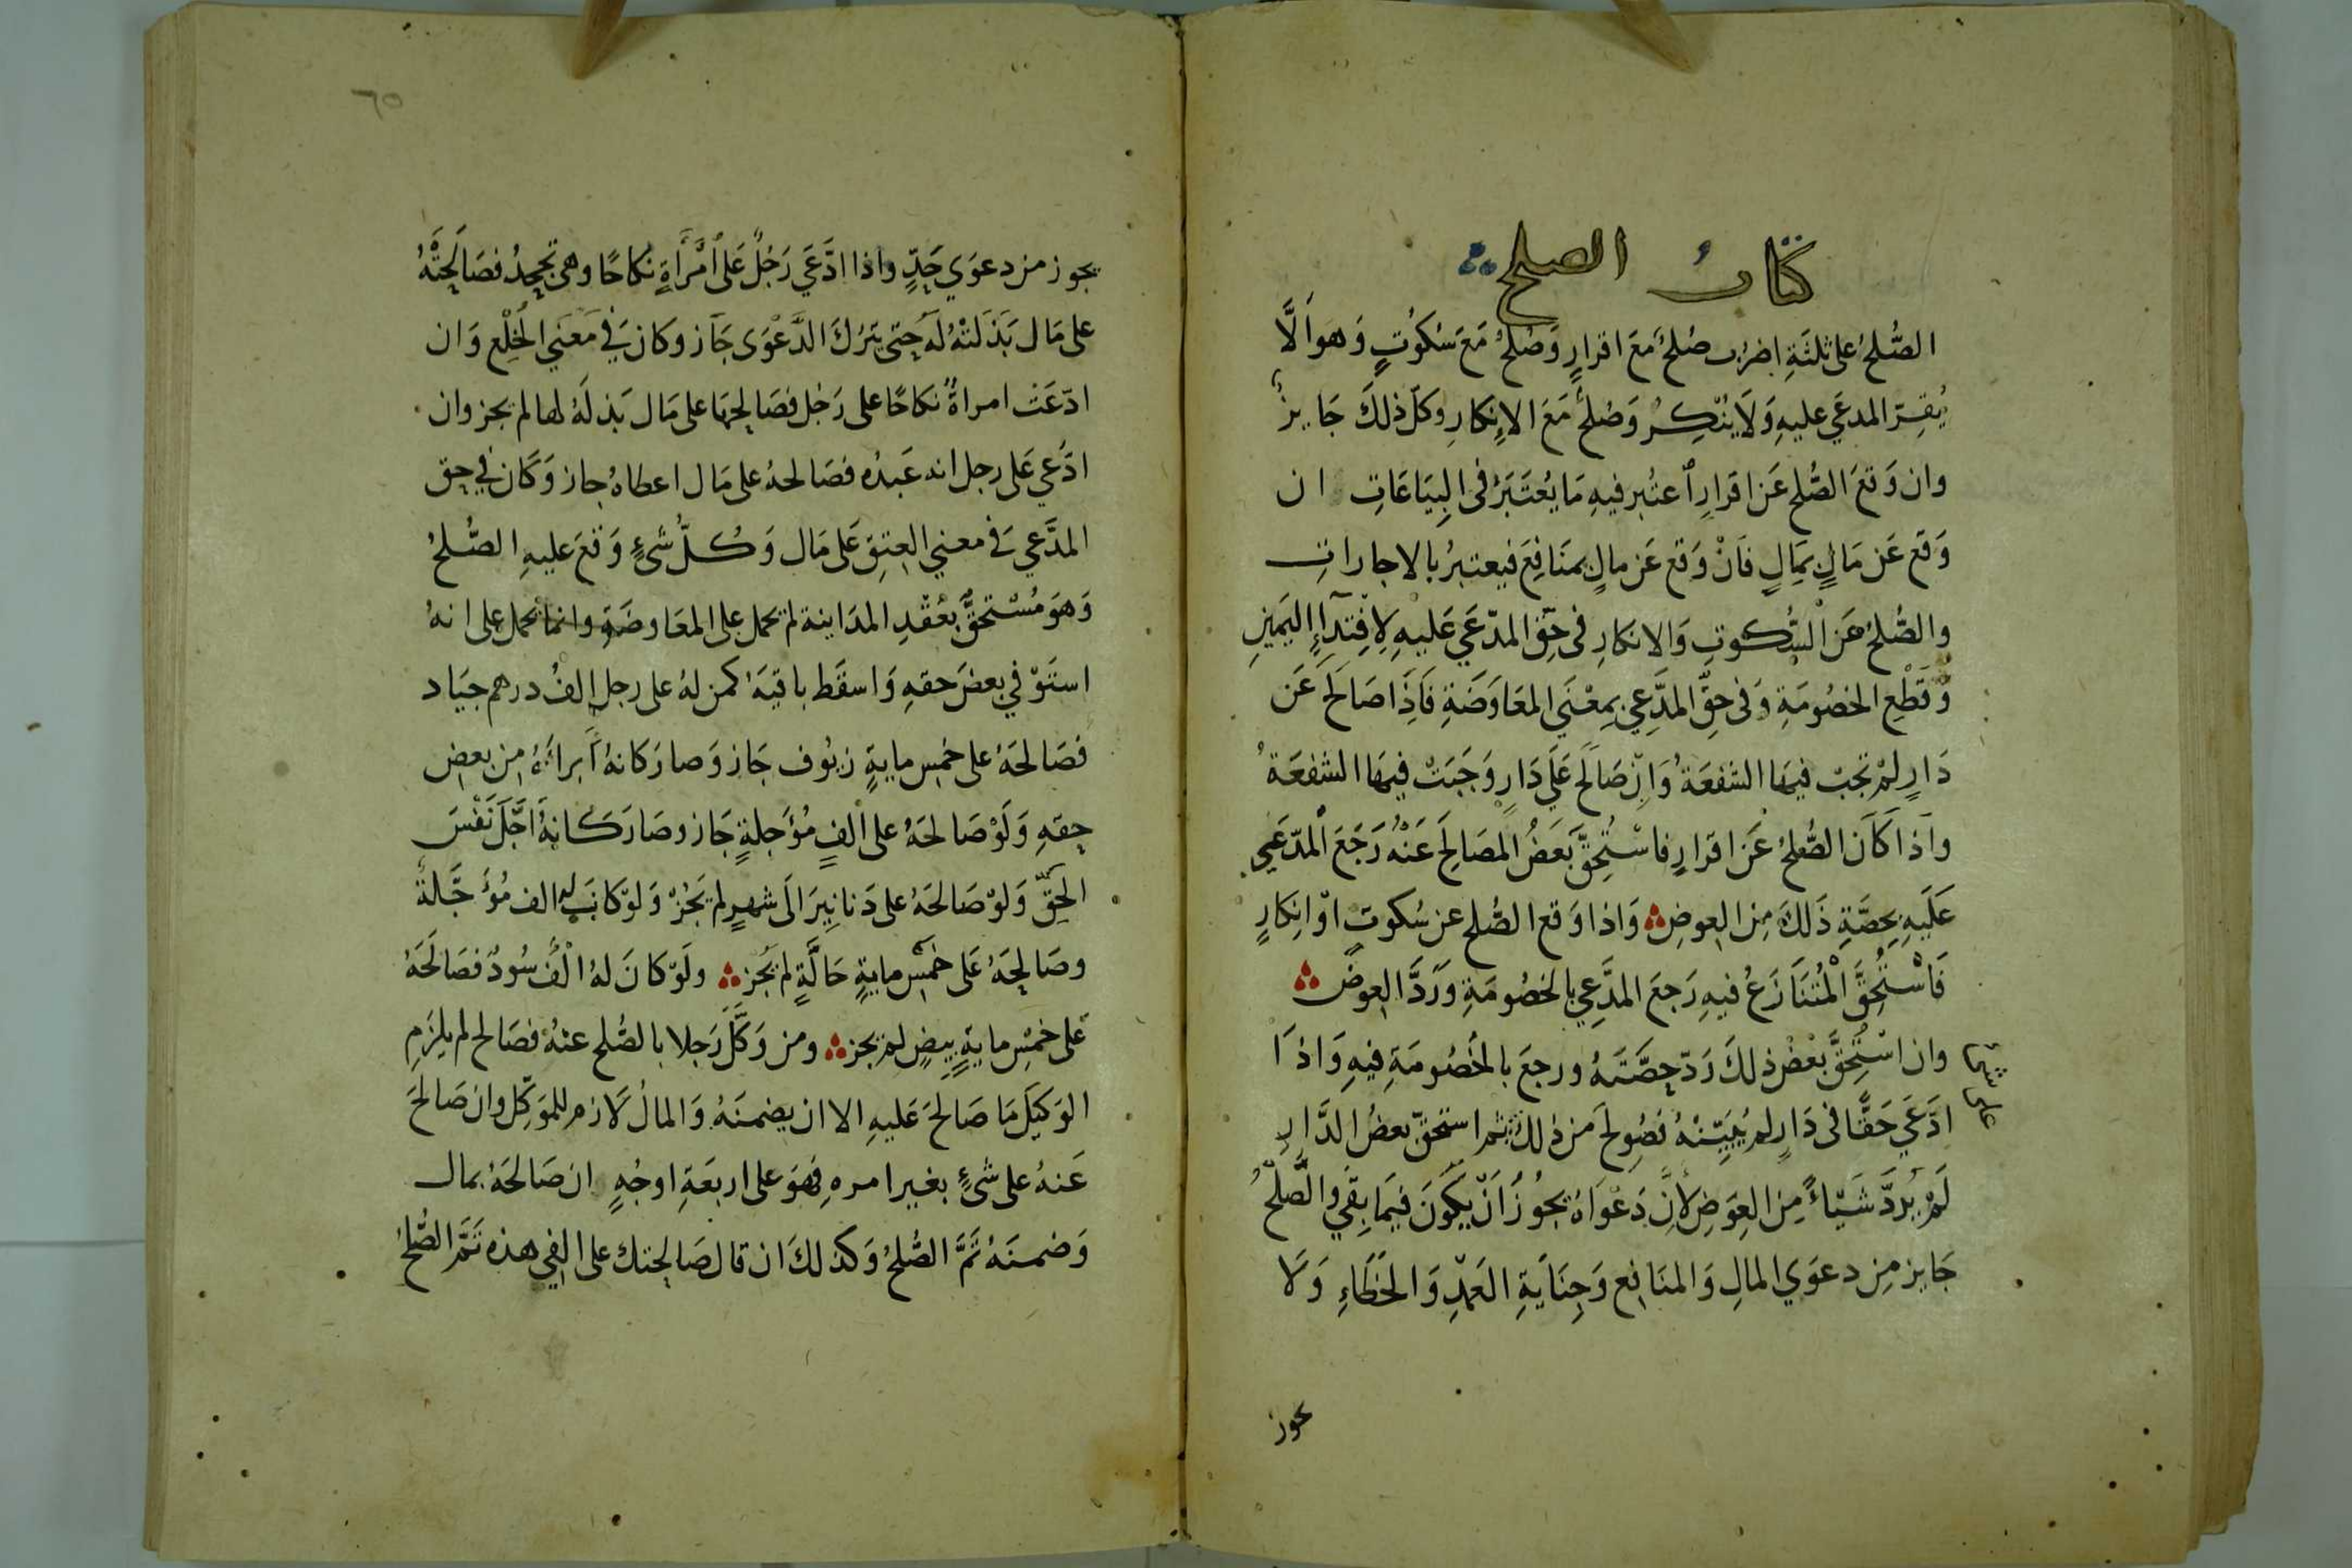 كتاب الصلح
الصُّلحُ على ثلثَةِ اضربٍ صُلحٌ مَعَ اقرارٍ وَصُلحٌ مَعَ سُكُوُتٍ وَهوَ اَلَّا
يُقِرّ المدعَي عليهِ وَلَا يُنْكِرُ وَصُلحٌ مَعَ الاِنكارِ وكلّ ذلكَ جَايزٌ
وان وَقعَ الصُّلح عَن اقرَارٍ اُعتُبر فيهِ مَا يُعتَبَرُ فى البِيَاعَاتِ ان
وَقع عَن مَالٍ بمَالٍ فَاِنْ وَقع عَن مالٍ بمنَافِعَ فيعتبرُ بالاجاراتِ
والصُّلحُ عَن السُّكوتِ وَالانكارِ فى حَقّ المدّعَي عَليهِ لِافتِدَآءِ اليَمينِ
وَقَطْعِ الخصُومَةِ وَفى حقِّ المدَّعِي بمعْنَي المعَاوَضَةِ فَاِذَا صَالَحَ عَن
دَارٍ لمْ تَجبْ فيهَا الشفعَةُ وَاِنْ صَالَحَ عَلَي دَارٍ وَجَبَتْ فيهَا الشفعَةُ
واذَا كَانَ الصُّلحُ عَن اقرارٍ فاسْتُحِقَّ بَعَضُ المصَالحِ عَنْهُ رَجَعَ المدّعَي
عَلَيهِ بِحِصَّةِ ذَلكَ مِن العِوضِ وَاذا وَقع الصُّلح عن سُكوتٍ اوْ انِكارٍ
فَاسْتُحِقَّ الْمُتنَازَعُ فيهِ رَجعَ المدَّعِي بالخصُومَةِ وَرَدَّ العِوضَ
وان اسْتُحِقَّ بَعْضُ ذلكَ رَدّ حِصَّتَهُ ورجعَ بالخصُومَةِ فيهِ وَاذَا
ادّعَي حَقًّا فى دَارٍ لم يُبَيِّنْهُ فَصُولحَ من ذلك ثم استحقّ بعضُ الدَّارِ
لَمْ يُرَدَّ شَيْاءً مِن العِوَضِ لاَنَّ دَعْوَاهُ يجُوزُ اَنْ يَكونَ فيمَا بقَي والصّلحُ
جَايز مِن دعوَي المالِ وَالمنَافع وَجِنَايَةِ العَمْدِ وَالخطَاءِ وَلَا
يجوز
٦٥
يجوز من دعوَي حَدٍّ واذا ادَّعَي رَجُلٌ عَلى امْرَأةٍ نكاحًا وهى تجحدُ فصَالحتْهُ
على مَال بَذَلتْهُ لهُ حتى يَترُكَ الدَّعْوَى جَاز وكان فى مَعنَي الخُلْع وَان
ادّعَت امراةٌ نكاحًا على رَجُل فصَالحهَا على مَال بَذلَهُ لها لم يجز وان
ادَّعي عَلى رجل انه عَبدُه فصَالحهُ على مَال اعطاهُ جاز وَكَان فى حق
المدَّعي فى معني العِتِق عَلى مَال وَكُلُّ شَىءٍ وَقعَ عليهِ الصُّلحُ
وَهوَ مُسْتحقٌّ بعْقدِ المدَاينة لم تحمل على المعَاوضَةِ وانما تحمل على انهُ
استَوْفي بعضَ حقهِ وَاسقَط باقيَهُ كمن لهُ على رجل الفُ درهم جيَاد
فصَالحَهُ على خمس مايةٍ زيُوف جَاز وَصار كَانهُ اَبراَهُ من بعض
حقهِ وَلَوْ صَالحَهُ على الفٍ مُؤَجلةٍ جَاز وصَارَ كَانهُ اَجَّلَ نَفْسَ
الحقّ وَلوْ صَالحَهُ على دَنانِيرَ الَى شهرٍ لم يَجُزْ وَلوْ كانَ له الف مُؤَجَّلةٌ
وصَالحَهُ عَلى خَمس مايةٍ حَالَّةٍ لم يَجُز ولَوْ كانَ لهُ اَلْفٌ سُودٌ فصَالَحَهُ
عَلى خمسِ مايةٍ بِيضٍ لم يجز ومن وَكَّلَ رَجلا بالصُّلح عنْهُ فصَالح لم يلزَم
الوَكيَلَ مَا صَالحَ عَليهِ الا ان يضمنَهُ وَالمالُ لَازم للموَكّل وان صَالحَ
عَنهُ على شَىءٍ بغير امرهِ فهوَ على اربعَةِ اوجُهٍ ان صَالحَهُ بمال
وَضمنَهُ تَمَّ الصُّلحُ وَكذلكَ ان قال صَالحتك على الفي هذه تَمَّ الصُّلحُ